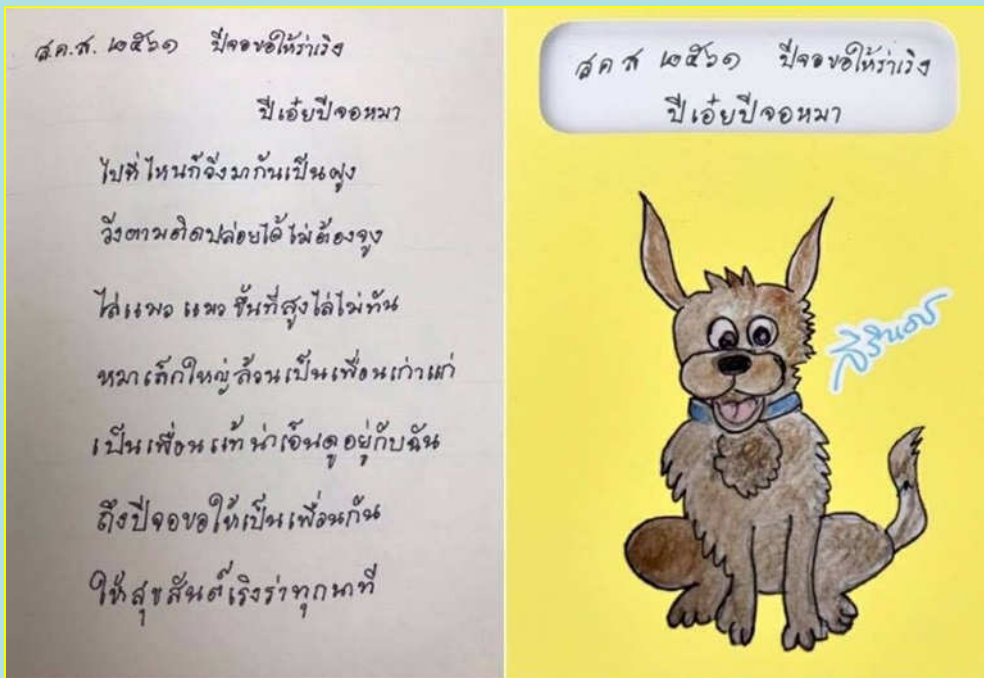 ส.ค.ส. ๒๕๖๑ ปีจอขอให้ร่าเริง
ปีเอ๋ยปีจอหมา
ไปที่ไหนก็วิ่งมากันเป็นฝูง
วิ่งตามติดปล่อยได้ไม่ต้องจูง
ไล่แมว แมว ขึ้นที่สูงไล่ไม่ทัน
หมาเล็กใหญ่ล้วนเป็นเพื่อนเก่าแก่
เป็นเพื่อนแท้น่าเอ็นดูอยู่กับฉัน
ถึงปีจอขอให้เป็นเพื่อนกัน
ให้สุขสันต์เริงร่าทุกนาที
ส ค ส ๒๕๖๑ ปีจอขอให้ร่าเริง
ปีเอ๋ยปีจอหมา
สิรินธร